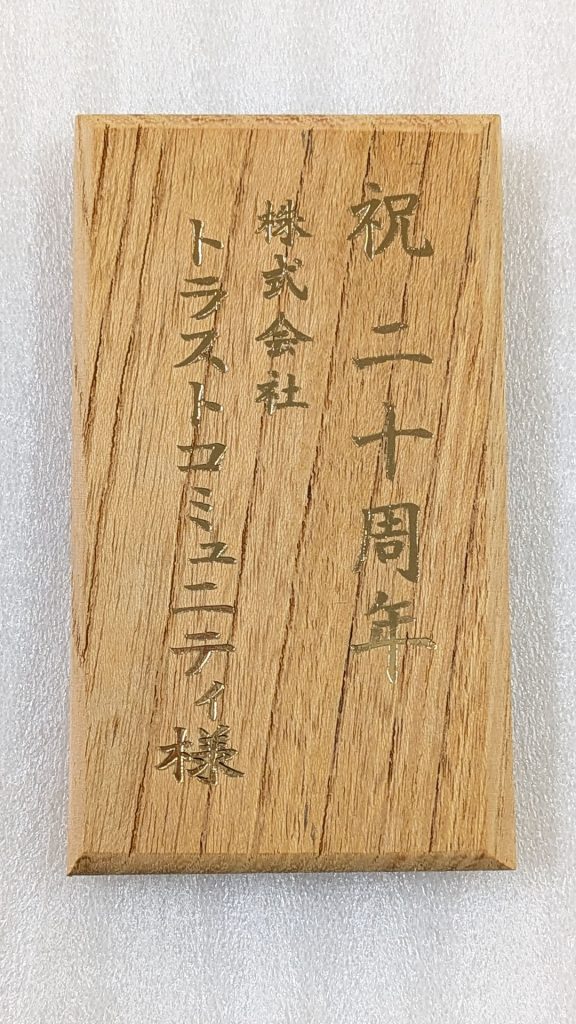 祝 二十周年
株式会社
トラストコミュニティ様